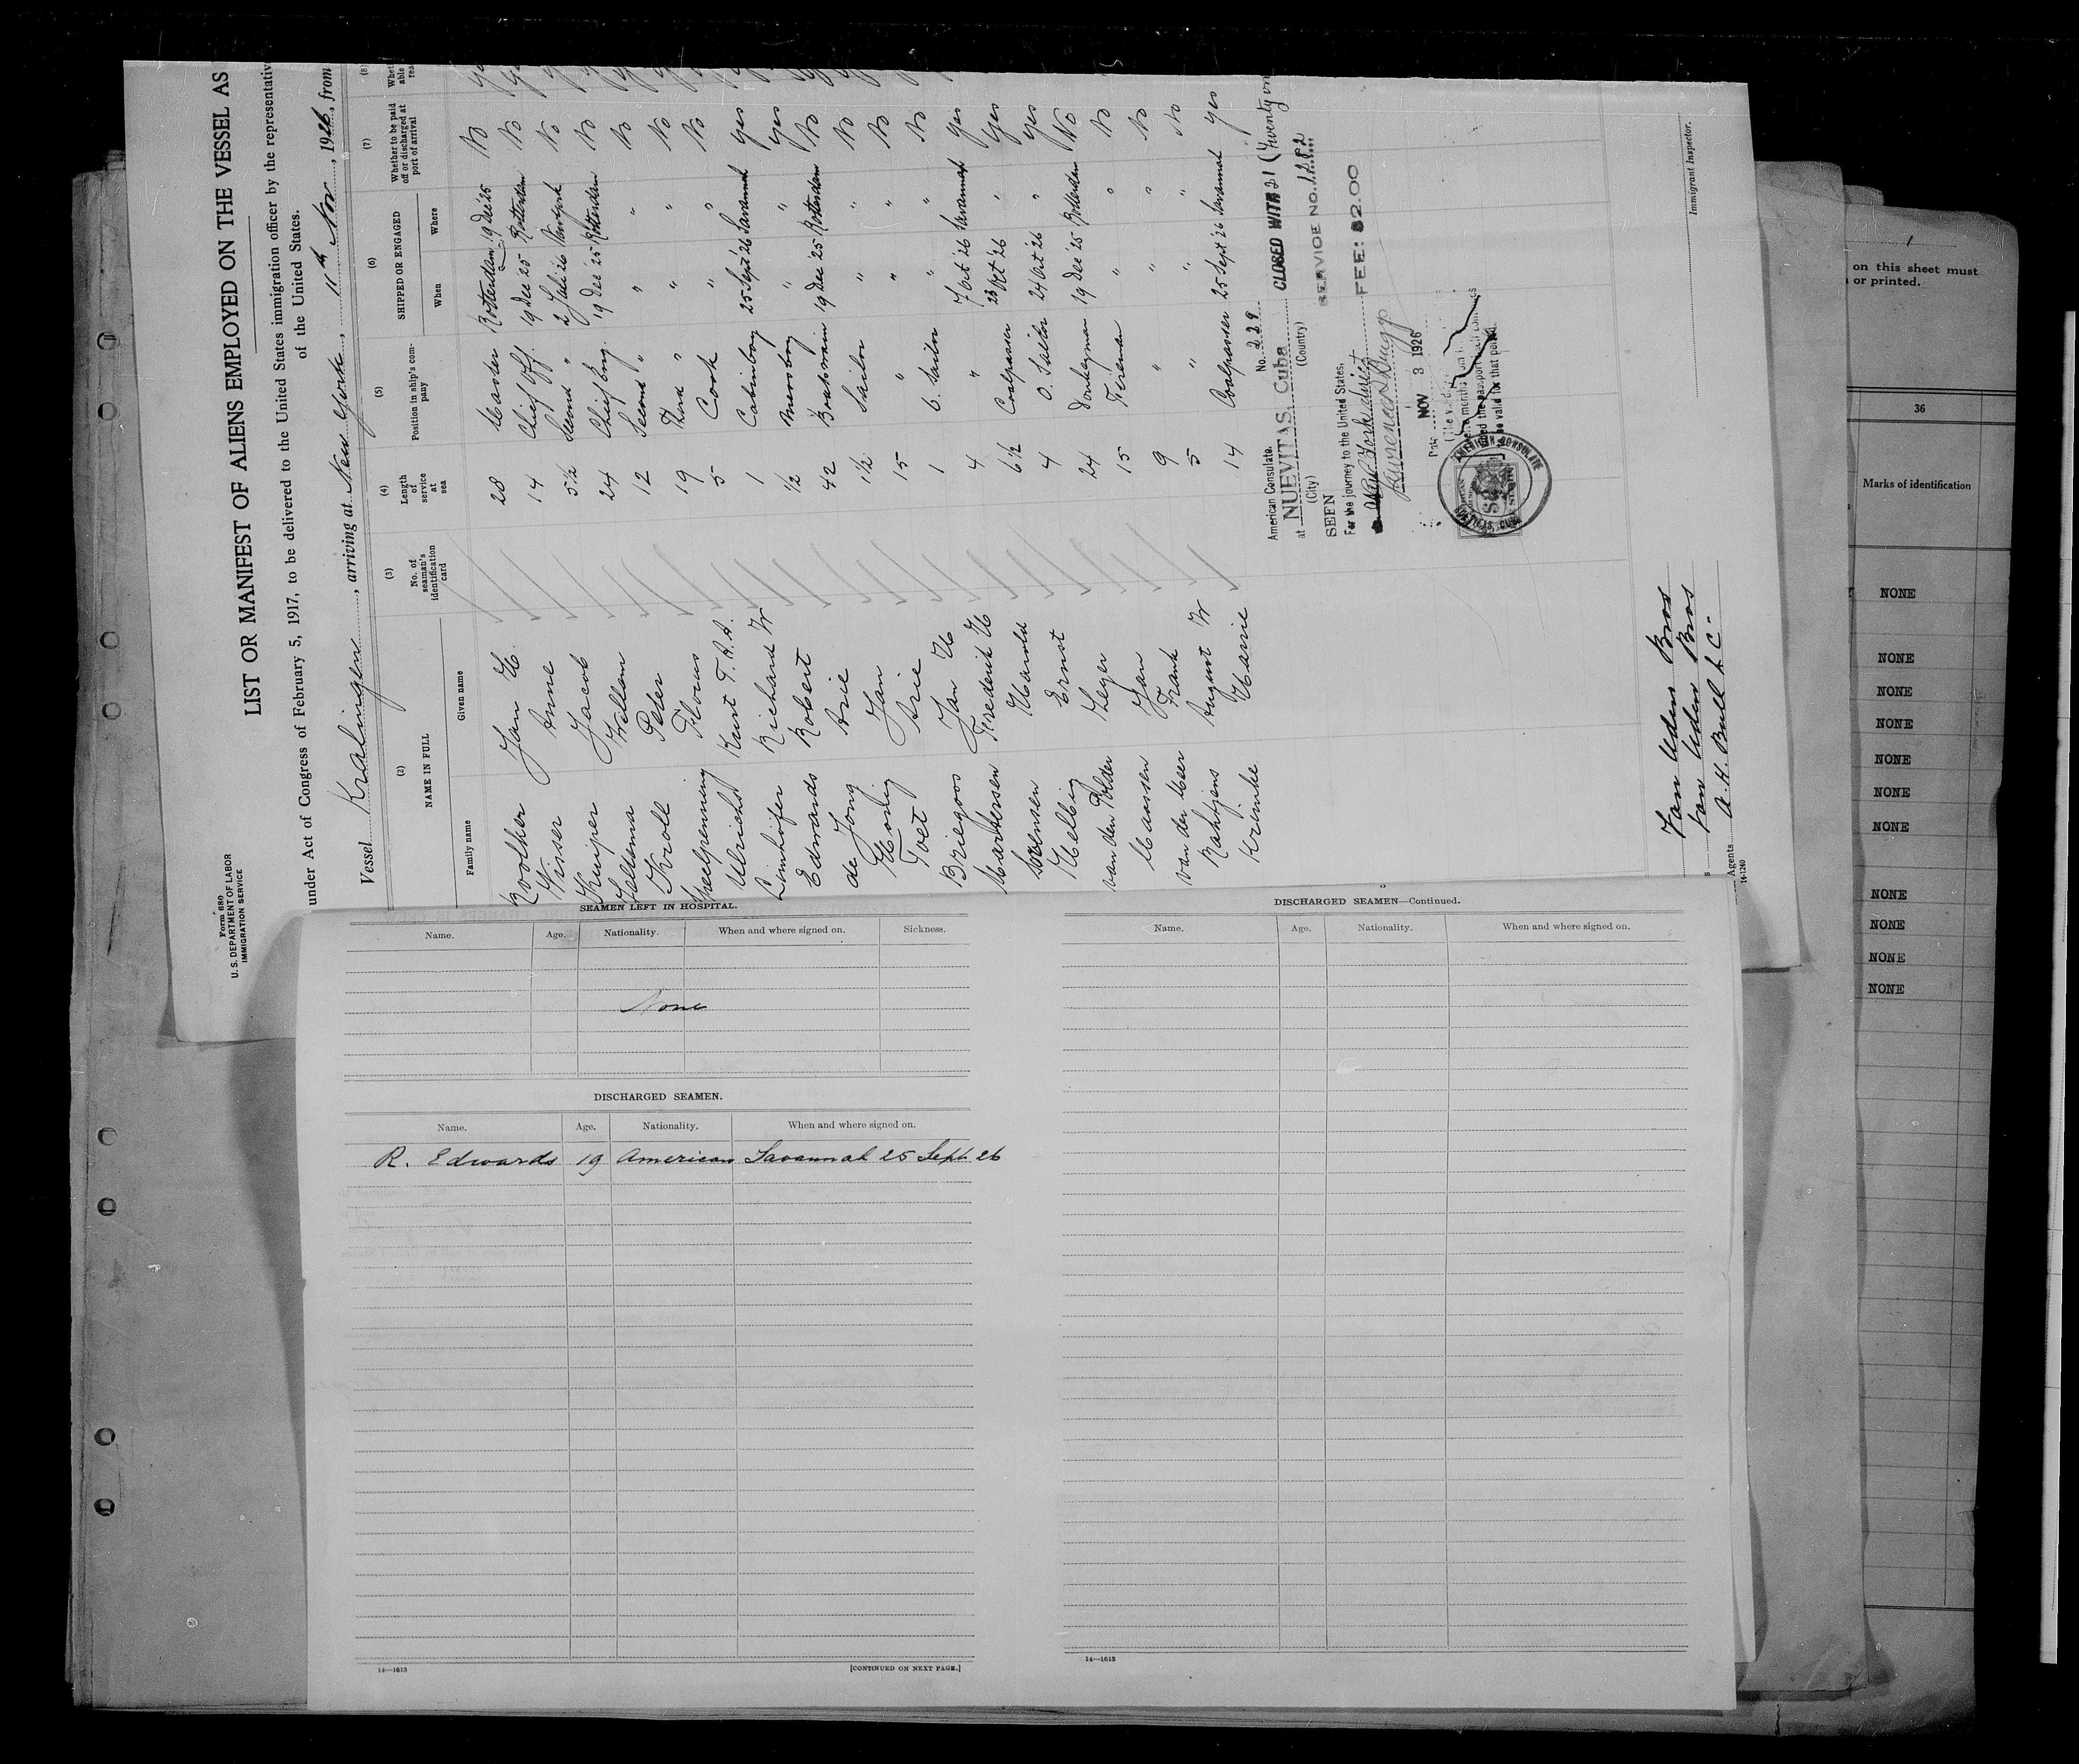 Form 680
U. S. DEPARTMENT OF LABOR
IMMIGRATION SERVICE
LIST OR MANIFEST OF ALIENS EMPLOYED ON THE VESSEL AS
under Act of Congress of February 5, 1917, to be delivered to the United States immigration officer by the representativ
of the United States.
Vessel Kralingen, arriving at New York, 11th Nov, 1926, from
(2) (3) (4) (5) (6) (7) (8)
NAME IN FULL No. of seaman's identification card Length of service at sea Position in ship's company SHIPPED OR ENGAGED Whether to be paid off or discharged at port of arrival
Family name Given name When Where
Koolher Jan H. 28 Master Rotterdam 19 Dec '25 No
Visser Anne 14 Chief Off. 19 Dec 25 Rotterdam No
Kuiper Jacob 5½ Second " 2 26 No
Seltema Willem 24 Chief Eng. 19 Dec '25 Rotterdam No
Kroll Peter 12 Second " " " No
Speelpenning Floris 19 Third " " " No
Ulrichst Kurt T. A. A. 5 Cook " " No
Limhöfer Richard W 1 Cabinboy 25 Sept '26 Savannah yes
Edwards Robert ½ Messboy " " yes
de Jong Arie 42 Boatswain 19 Dec '25 Rotterdam No
Honig Jan 1½ Sailor " " No
Toet Arie 15 " " " No
Briegoos Jan H 1 O. Sailor " " No
Marhersen Frederik H 4 " 7 Oct '26 Savannah yes
Sorensen Harold 6½ Coalpasser 23 Oct '26 " yes
Helbig Ernst 4 O. Sailor 24 Oct '26 " yes
van den Polder Leger 24 Donkeyman 19 Dec '25 Rotterdam No
Maassen Jan 15 Fireman " " No
van der Meer Frank 9 " " " No
Rahtjens August W 5 " " " No
Krijnke Marie 14 Coalpasser 25 Sept '26 Savannah yes
American Consulate, No. 229
at NUEVITAS, Cuba
(City) (Country)
CLOSED WITH 21 (Twenty one
SEEN
SERVICE NO. 1282
For the journey to the United States,
New York direct
FEE: $2.00
Date NOV 3 1926
AMERICAN CONSULATE
NUEVITAS, CUBA
Immigrant Inspector.
Van Uden Bros
Van Uden Bros
Agents A. H. Bull & C
14-1240
on this sheet must
or printed.
36
Marks of identification
NONE
NONE
NONE
NONE
NONE
NONE
NONE
NONE
NONE
NONE
NONE
SEAMEN LEFT IN HOSPITAL.
Name. Age. Nationality. When and where signed on. Sickness.
None
DISCHARGED SEAMEN.
Name. Age. Nationality. When and where signed on.
R. Edwards 19 American Savannah 25 Sept. 26
14—1613 [CONTINUED ON NEXT PAGE.]
DISCHARGED SEAMEN—Continued.
Name. Age. Nationality. When and where signed on.
14—1613